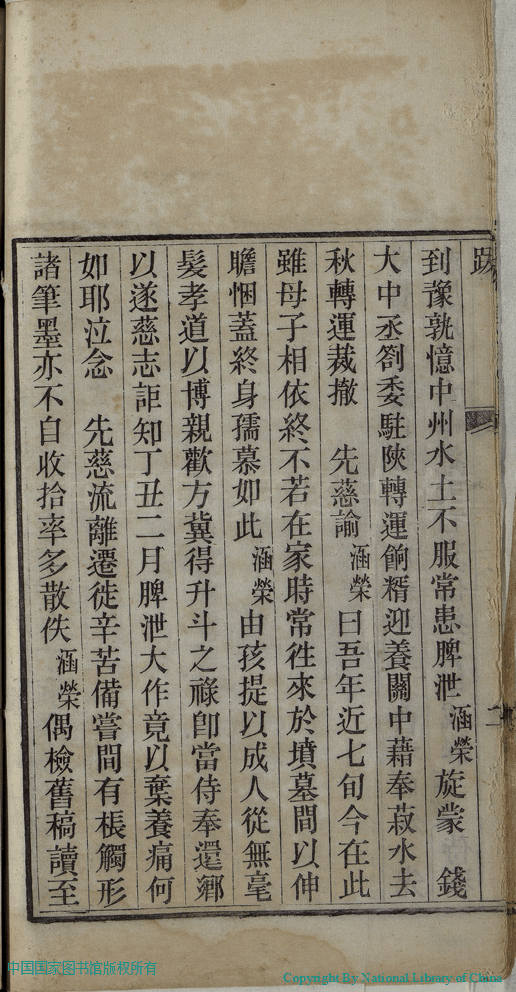 跋
到豫孰憶中州水土不服常患脾泄涵榮旋蒙　錢
大中丞劄委駐陝轉運餉糈迎養關中藉奉菽水去
秋轉運裁撤　先慈諭涵榮曰吾年近七旬今在此
雖母子相依終不若在家時常徃來於墳墓間以伸
瞻悃蓋終身孺慕如此涵榮由孩提以成人從無毫
髮孝道以博親歡方冀得升斗之祿卽當侍奉還鄉
以遂慈志詎知丁丑二月脾泄大作竟以棄養痛何
如耶泣念　先慈流離遷徙辛苦備嘗間有棖觸形
諸筆墨亦不自收拾率多散佚涵榮偶檢舊稿讀至
二
中国国家图书馆版权所有
Copyright By National Library of China